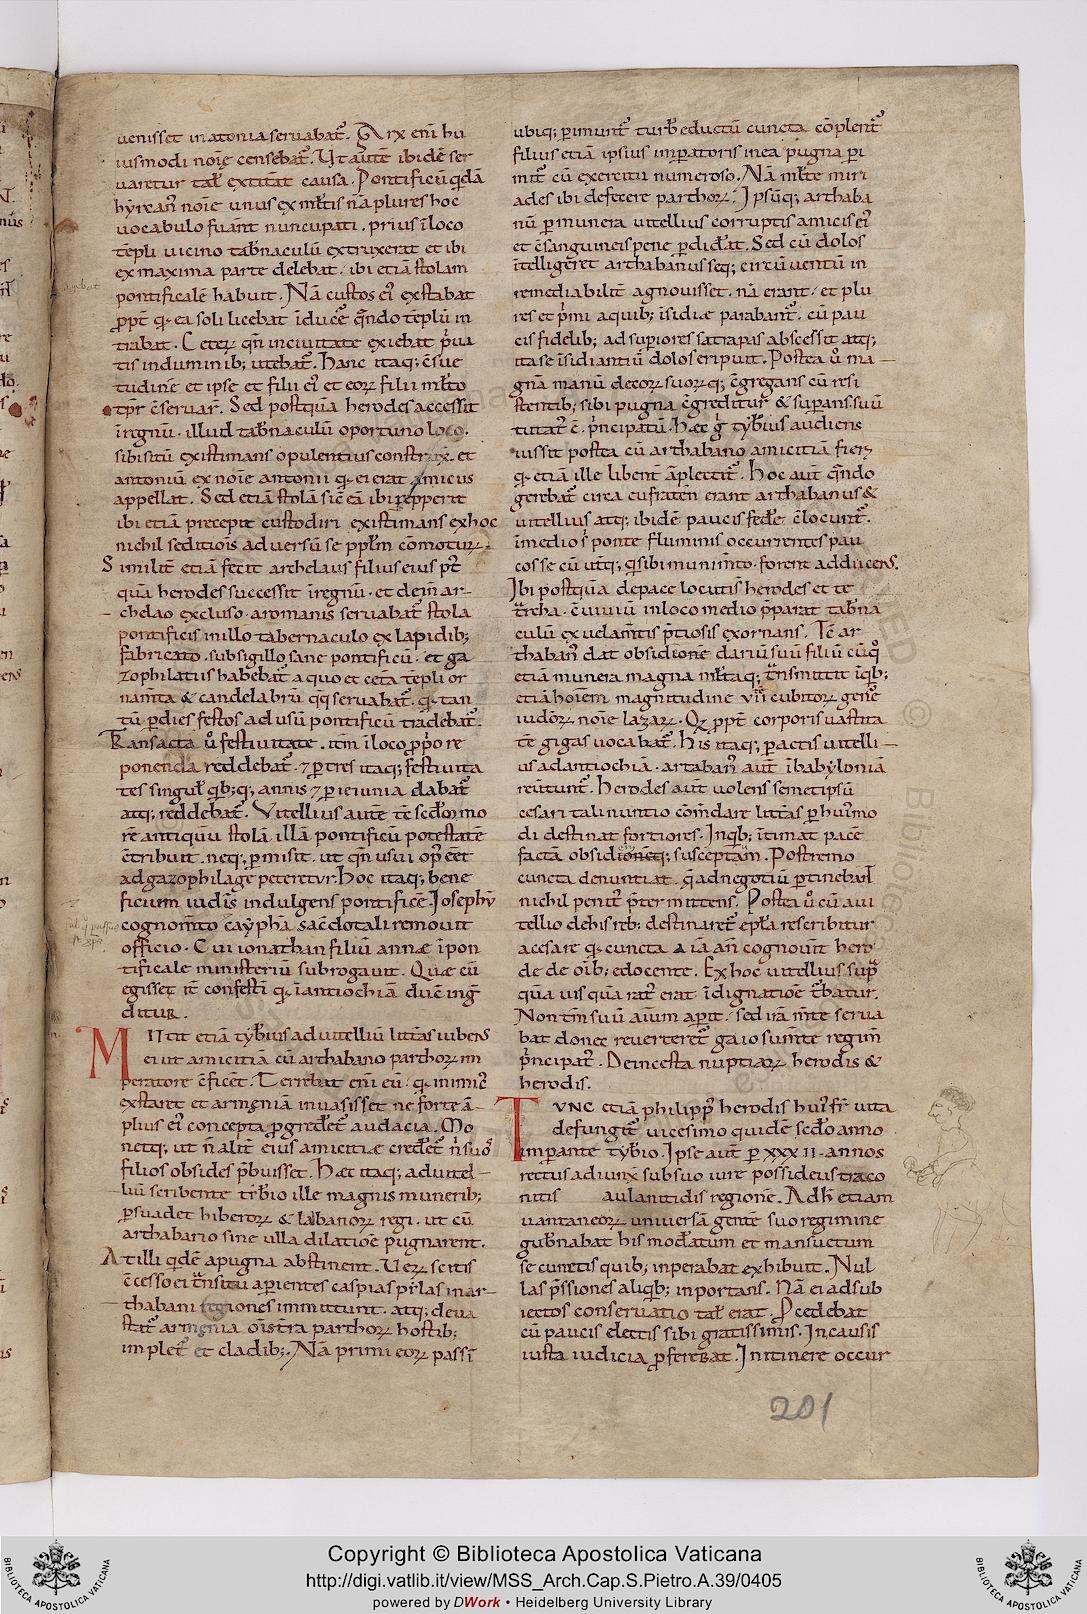 uenisset in atonia seruabat͛. Arx eni͂ hu
iusmodi noi͂e censebat͛. Ut aute͂ ibide͂ ser
uaretur tal̓ extitit causa. Pontificu͂ qda͂
hyrcan᷒ noi͂e unus ex ml̓tis na͂ plures hoc
uocabulo fuer̄ant nuncupati. prius i͂ loco
te͂pli uicino tab̓naculu͂ extruxerat et ibi
ex maxima parte delebat. ibi etia͂ stolam
pontificale͂ habuit. Na͂ custos ei᷒ extabat
ꝓpt͛ q. ea soli licebat i͂duce͛ qn͂do te͂plu͂ in
trabat. Ceter̄ qn͂ in ciuitate exiebat p͛ua
tis indumi͂nib; utebat͛. Hanc itaq; c͂sue
tudine͂ et ipse et filii ei᷒ et eorꝝ filii ml̓to
tp͂r c͂seruar̄. Sed postqua͂ herodes accessit
i͂ regnu͂. illud tab̓naculu͂ oportuno loco.
sibi situ͂ existimans opulentius construx. et
antoniu͂ ex noi͂e antonii q. ei erat amicus
appellat. Sed etia͂ stola͂ sic͛ ea͂ ibi repperit
ibi etia͂ precepit custodiri existimans ex hoc
nichil seditiois͂ aduersu͂ se ppl̓m co͂moturꝝ.
Similit͛ etia͂ fecit archelaus filius eius pt᷒
qua͂ herodes successit i͂ regnu͂. et dein͂ ar-
chelao excluso. a romanis seruabat͛ stola
pontificis in illo tabernaculo ex lapidib;
fabricato. sub sigillo sane pontificu͂. et ga
zophilatius hab̓ebat͛ a quo et ceta te͂pli or
nam̄ta & candelabru͂ qq seruabat͛. q. tan
tu͂ ꝑ dies festos ad usu͂ pontificu͂ tradebat͛.
Transacta u̓ festiuitate. ite͂ i͂ loco ꝓpo re
ponenda reddebat͛. ⁊ ꝑ tres itaq; festiuita
tes singul̓ qb;q; annis ⁊ ꝑ ieiunia dabat͛
atq; reddebat͛. Vitellius aute͂ te͂ scd̓o͂ mo
re͂ antiquu͂ stola͂ illa͂ pontificu͂ potestate͂
c͂tribuit. neq; ꝑmisit. ut qn͂ usui op᷒ ee͂t
ad gazophilage peteretur. Hoc itaq; bene
ficium iudis͂ indulgens pontifice͂ Josephu͂
cognom͂to caypha͂ sac͛dotali remouit
officio. Cui ionathan filiu͂ annæ i͂pon
tificale ministeriu͂ subrogauit. Quæ cu͂
egisset it͛ confesti͂ q. i͂ antiochia͂ duce͂ ing͛
ditur.
Mittit etia͂ tyb̓ius ad uitelliu͂ litt͛as iubens
ei ut amicitia͂ cu͂ arthabano parthorꝝ im
peratore c͂ficet͛. Terrebat eni͂ eu͂. q. inimic᷒
extaret et armenia͂ inuasisset ne forte a͂-
plius ei᷒ concepta ꝓgrederet͛ audacia. Mo
netq; ut n͂ alit͛ eius amicitiæ crederet͛ n͛ suo᷒
filios obsides p͛buisset. Hæc itaq; ad uitel-
liu͂ scribente tib̓io ille magnis munerib;
ꝑsuadet hiberorꝝ & labanorꝝ regi. ut cu͂
arthabano sine ulla dilatioe͂ pugnarent.
At illi qde͂ a pugna abstinent. Uerꝝ scitis
c͂cesso ei t͛nsitu aperientes caspias pr̄ulas in ar-
thabani regiones immittunt. atq; deua
stat͛ armenia ois͂ terra parthorꝝ hostib;
implet͛ et cladib;. Na͂ primi eorꝝ passi͂
ubiq; ꝑimunt͛ turb̓ eductu͂ cuncta co͂plent͛
filius etia͂ ipsius imꝑatoris in ea pugna ꝑi
mit͛ cu͂ exercitu numeroso. Na͂ ml̓te miri
ades ibi defecere parthorꝝ. Ipsu͂q; arthaba
nu͂ ꝑ munera uitellius corruptis amicis ei᷒
et c͂sanguineis pene ꝑdid̓at. Sed cu͂ dolos
i͂telligeret arthabanus seq; circu͂uentu͂ in
remediabilit͛ agnouisset. na͂ erant. et plu
res et p͛mi a quib; i͂sidiæ parabant͛. cu͂ pau
cis fidelib; ad superiores satrapas abscessit atq;
ita se i͂sidiantiu͂ dolos eripuit. Postea u̓ ma-
gna͂ manu͂ decorꝝ suorꝝ q; c͂gregans cu͂ resi
stentib; sibi pugna c͂greditur & superans. suu͂
tutat͛ e͂. p͛ncipatu͂. Hæc g͛ tyb̓ius audiens
iussit postea cu͂ arthabano amicitia͂ fieri
q. etia͂ ille libent͛ a͂plectit͛. Hoc aut͂ qn͂do
gerebat͛ circa eufraten erant arthabanus &
uitellius atq; ibide͂ paucis fede͛ c͂locunt͛.
i͂ medio s̓ ponte fluminis occurrentes pau
cos se cu͂ ut͛q; q sibi munim͂to. forent adducens.
Ibi postqua͂ de pace locutis herodes et te
t͛rcha. c͂uiuiu͂ in loco medio p͛parat tab̓na
culu͂ ex uelam͂tis p͛tiosis exornans. Tc͂ ar
thaban᷒ dat obsidione͂ dariu͂ suu͂ filiu͂ cu͂ quo
etia͂ munera magna ml̓taq; t͛nsmittit i͂ qb;
etia͂ hoi͂em magnitudine vii cubitorꝝ gene͛
iudeorꝝ noi͂e lazarꝝ. Qꝫ ppt͛ corporis uastita
te͂ gigas uocabat͛. His itaq; ꝑactis uitelli-
us ad antiochia͂. artaban᷒ aut͂ i͂ babylonia͂
reu͛tunt͛. Herodes aut͂ uolens semetipsu͂
cesari tali nuntio co͂m̄dare litt͛as ꝑ hui᷒mo
di destinat fortiores. In qb; i͂timat pace͂
facta͂ obsidione͂q; suscepta͂m. Postremo
cuncta denuntiat. q͛ ad negotiu͂ ꝑtinebant͛
nichil penit᷒ p͛termittens. Postea u̓ cu͂ a ui
tellio de his reb; destinaret͛ epl̓a rescribitur
a cesare q. cuncta a ia͂ an͂ cognouit͛ hero
de de oi͂b; edocente. Ex hoc uitellius sup͛
qua͂ uis qua͂ rat᷒ erat i͂dignatioe͂ t͛batur.
Non tm͂ suu͂ ai͂um aperit. sed ira͂ m͂te serua
bat donec reuerteret͛ gaio sum͂te regim͂
p͛ncipat᷒. Deincesta nuptiarꝝ herodis &
herodis.
TVNC etia͂ philipp᷒ herodis hui᷒ fr̄ uita
defungit͛ uicesimo quide͂ scd̓o anno
imꝑante tyb̓io. Ipse aut͂ ꝑ xxxii. annos
rectus ad iunx̄ sub suo iure possideus traco
nitis aulanitidis regione͂. Adh̓ etiam
uantaneorꝝ uniuersa͂ gente͂ suo regimine
gub̓nabat his mod̓atum et mansuetum
se cunctis quib; inperabat exhibuit. Nul
las p͛ssiones aliqb; inportans. Na͂ ei ad sub
iectos conseruatio tal̓ erat. Pcedebat
cu͂ paucis electis sibi gratissimis. In causis
iusta iudicia ꝓferebat. In itinere occur
201
Copyright © Biblioteca Apostolica Vaticana
http://digi.vatlib.it/view/MSS_Arch.Cap.S.Pietro.A.39/0405
powered by DWork • Heidelberg University Library
BIBLIOTECA APOSTOLICA VATICANA
BIBLIOTECA APOSTOLICA VATICANA